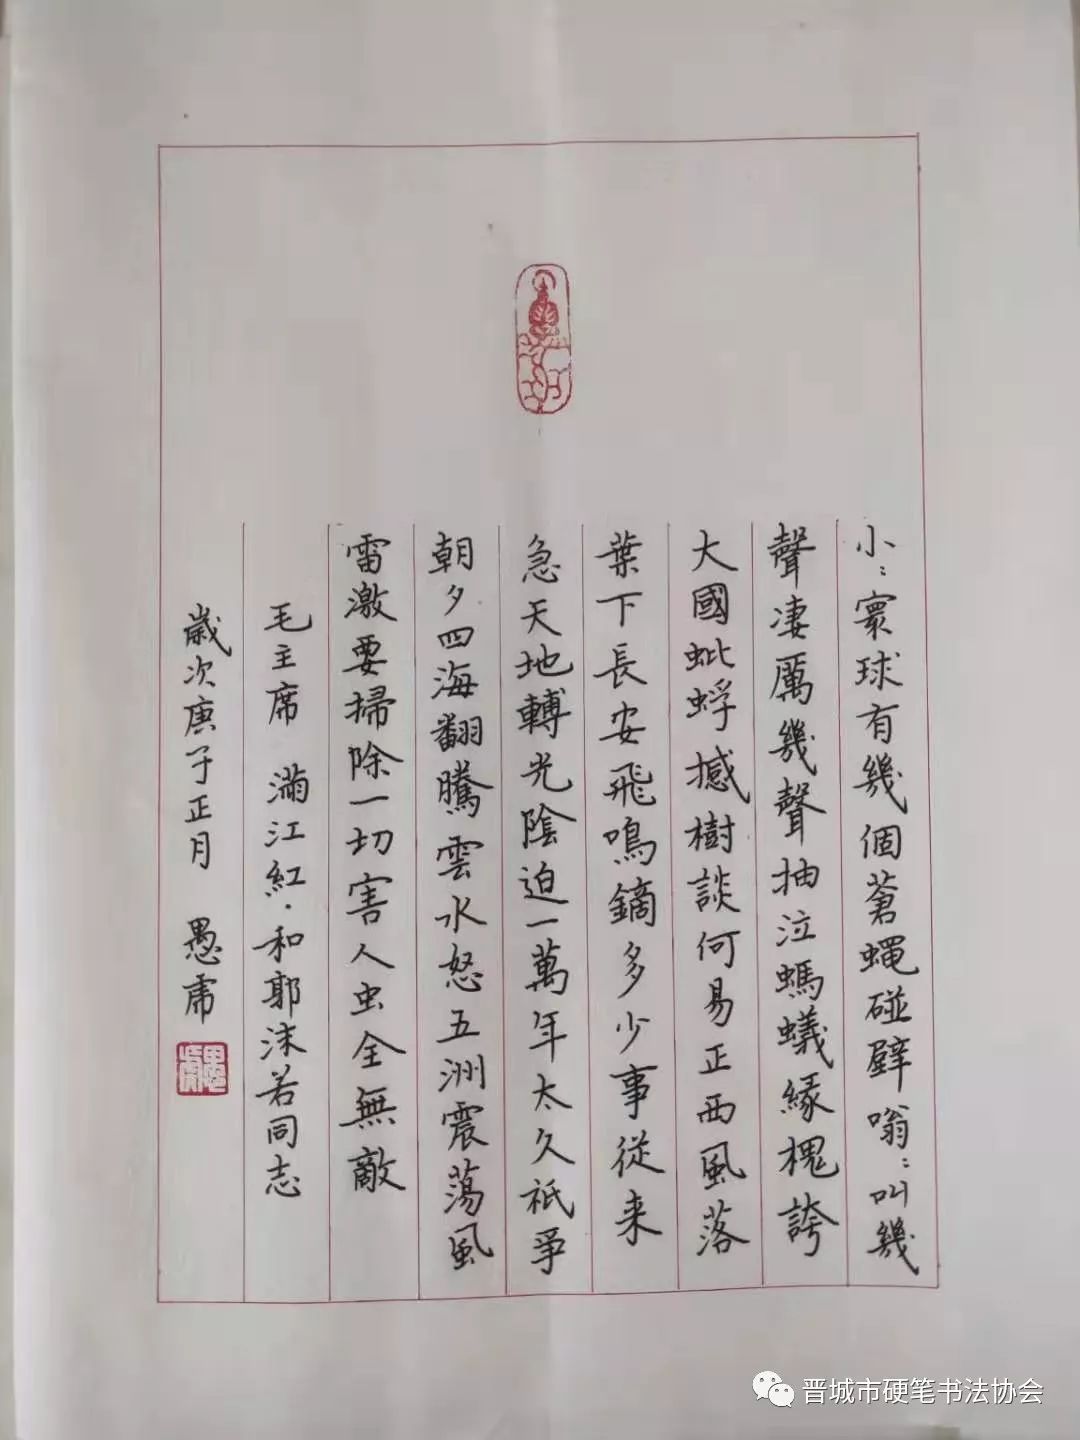 小〻寰球有幾個蒼蠅碰壁嗡〻叫幾
聲凄厲幾聲抽泣螞蟻緣槐誇
大國蚍蜉撼樹談何易正西風落
葉下長安飛鳴鏑多少事從来
急天地轉光陰迫一萬年太久祇爭
朝夕四海翻騰雲水怒五洲震蕩風
雷激要掃除一切害人虫全無敵
毛主席 滿江紅·和郭沫若同志
歲次庚子正月 愚虎
晋城市硬笔书法协会